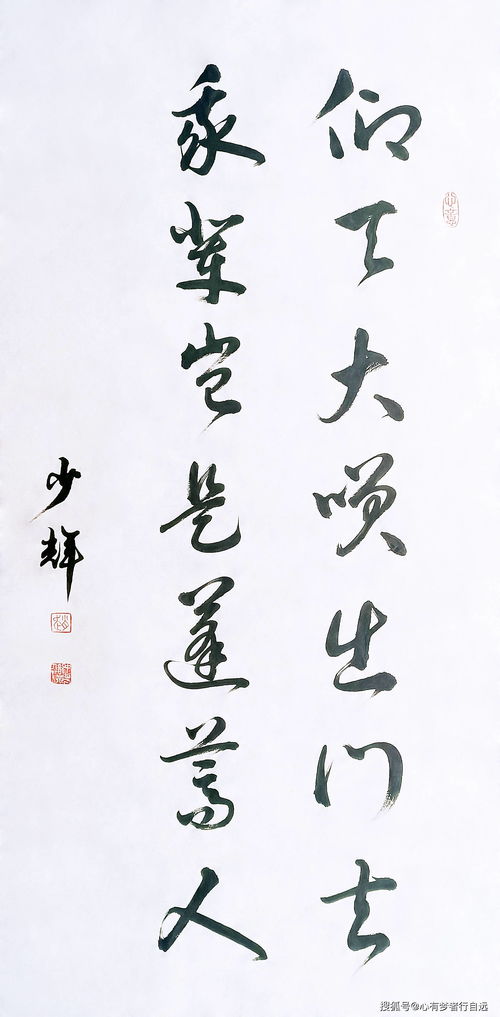 仰天大唉出门去
我辈岂是蓬蒿人
少辉
搜狐号@心有梦者行自远